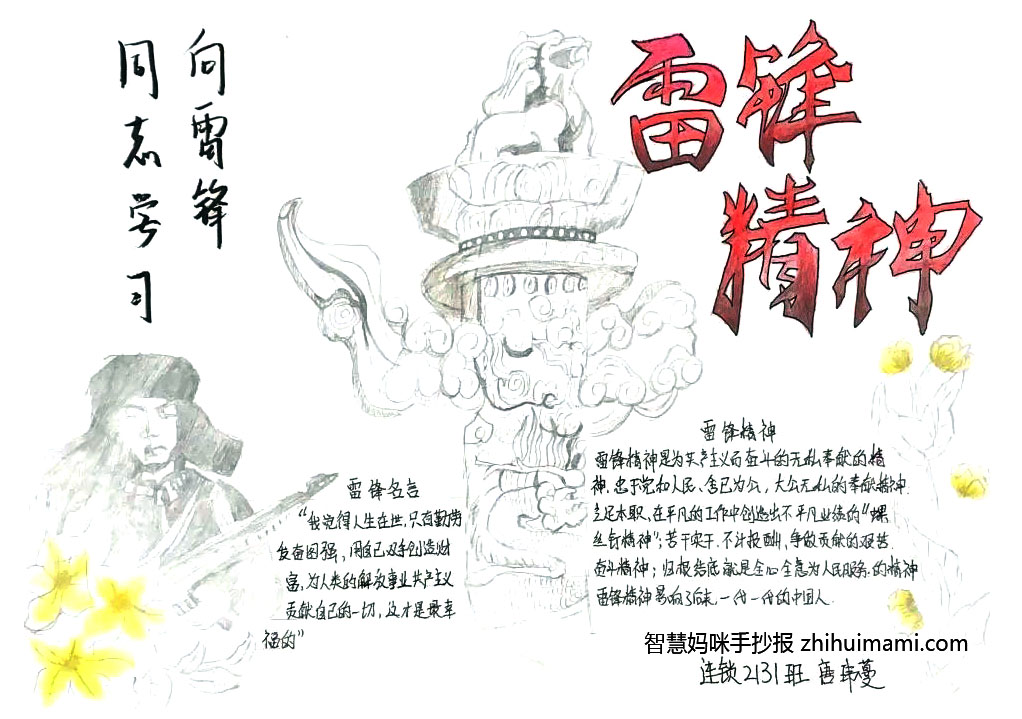 向雷锋
同志学习
雷锋
精神
雷锋名言
“我觉得人生在世,只有勤劳
发奋图强,用自己双手创造财
富,为人类的解放事业共产主义
贡献自己的一切,这才是最幸
福的”
雷锋精神
雷锋精神是为共产主义而奋斗的无私奉献的精
神.忠于党和人民、舍己为公,大公无私的奉献精神.
立足本职、在平凡的工作中创造出不平凡业绩的“螺
丝钉精神”;苦干实干、不计报酬,争做贡献的艰苦
奋斗精神;归根结底就是全心全意为人民服务的精神
雷锋精神影响了后来一代一代的中国人.
智慧妈咪手抄报 zhihuimami.com
连锁2131班 唐玮蔓